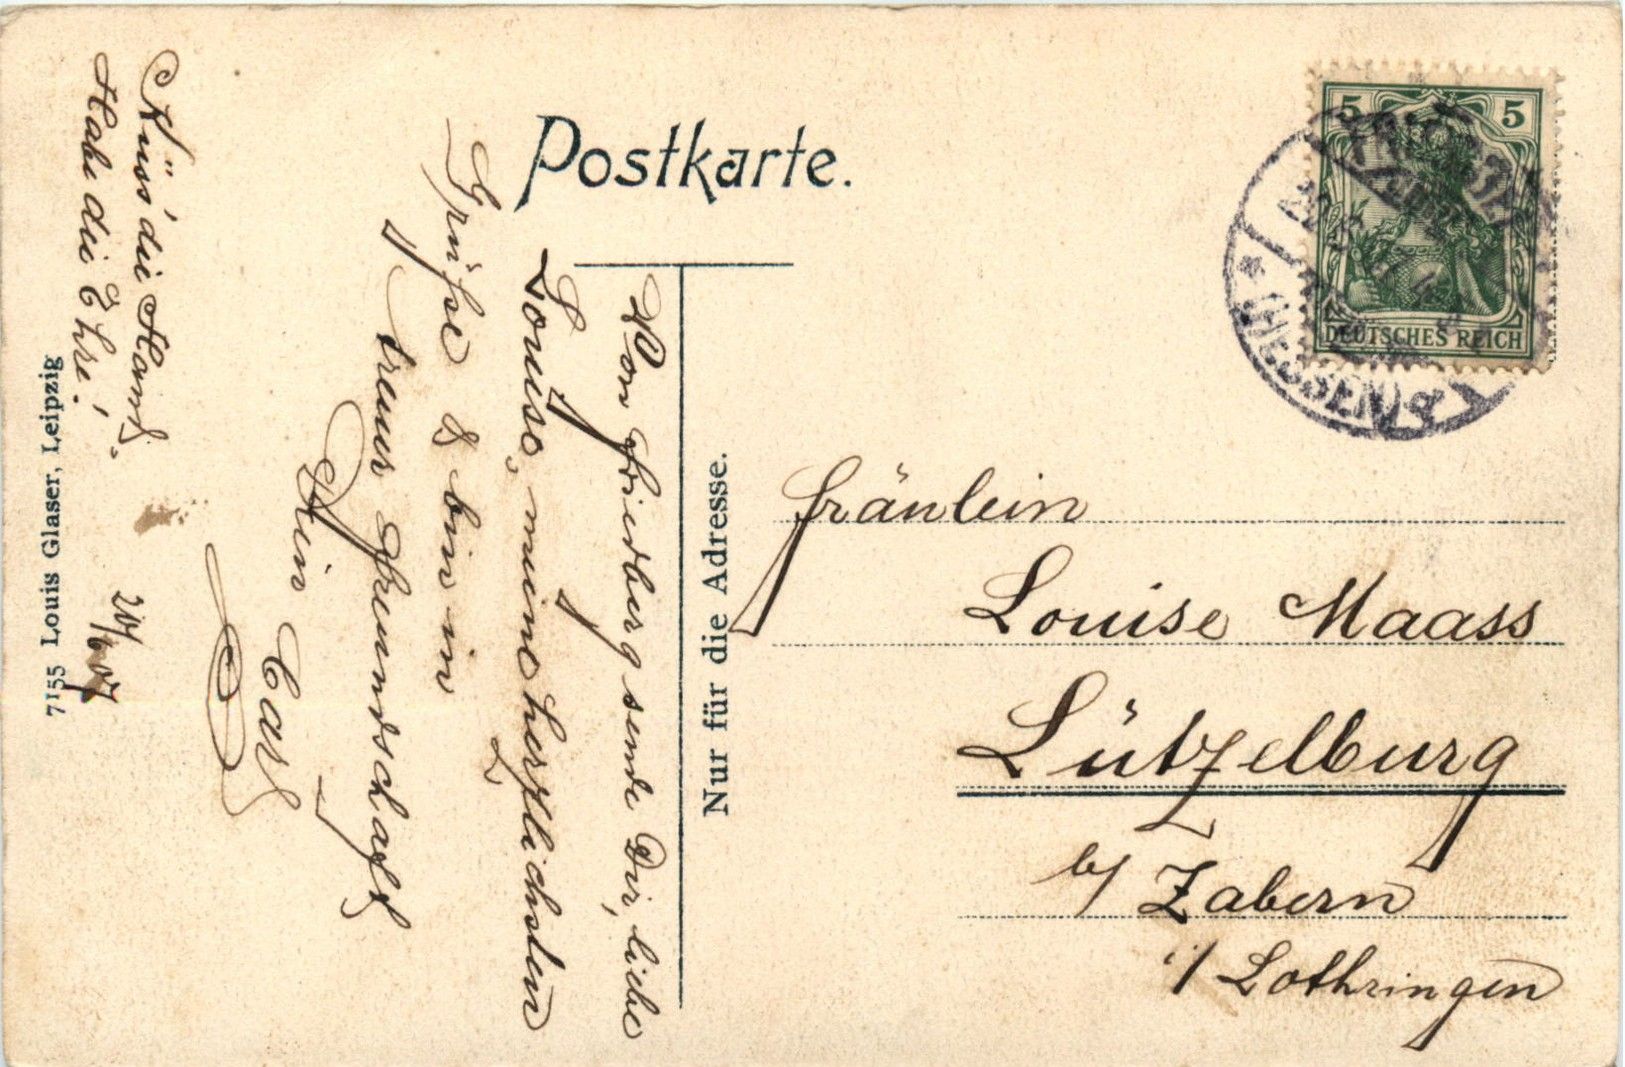 Postkarte.
Von Friedburg sende Dir, liebe
Louise, meine herzlichsten
Grüße & bin in
treuer Freundschaft
Dein Carl
Küss' die Hand.
Habe die Ehre!
20/6 07
7155 Louis Glaser, Leipzig
Nur für die Adresse.
5 5
DEUTSCHES REICH
(HESSEN)
Fräulein
Louise Maass
Lützelburg
b/ Zabern
i/ Lothringen